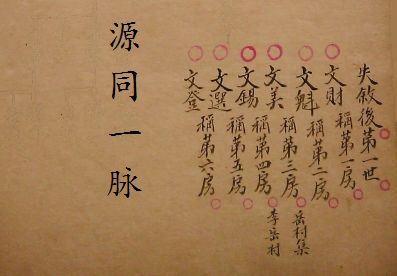 失敘後第一世
文財 稱第一房
文魁 稱第二房
岳村集
文美 稱第三房
李岳村
文錫 稱第四房
文選 稱第五房
文登 稱第六房
源同一脉